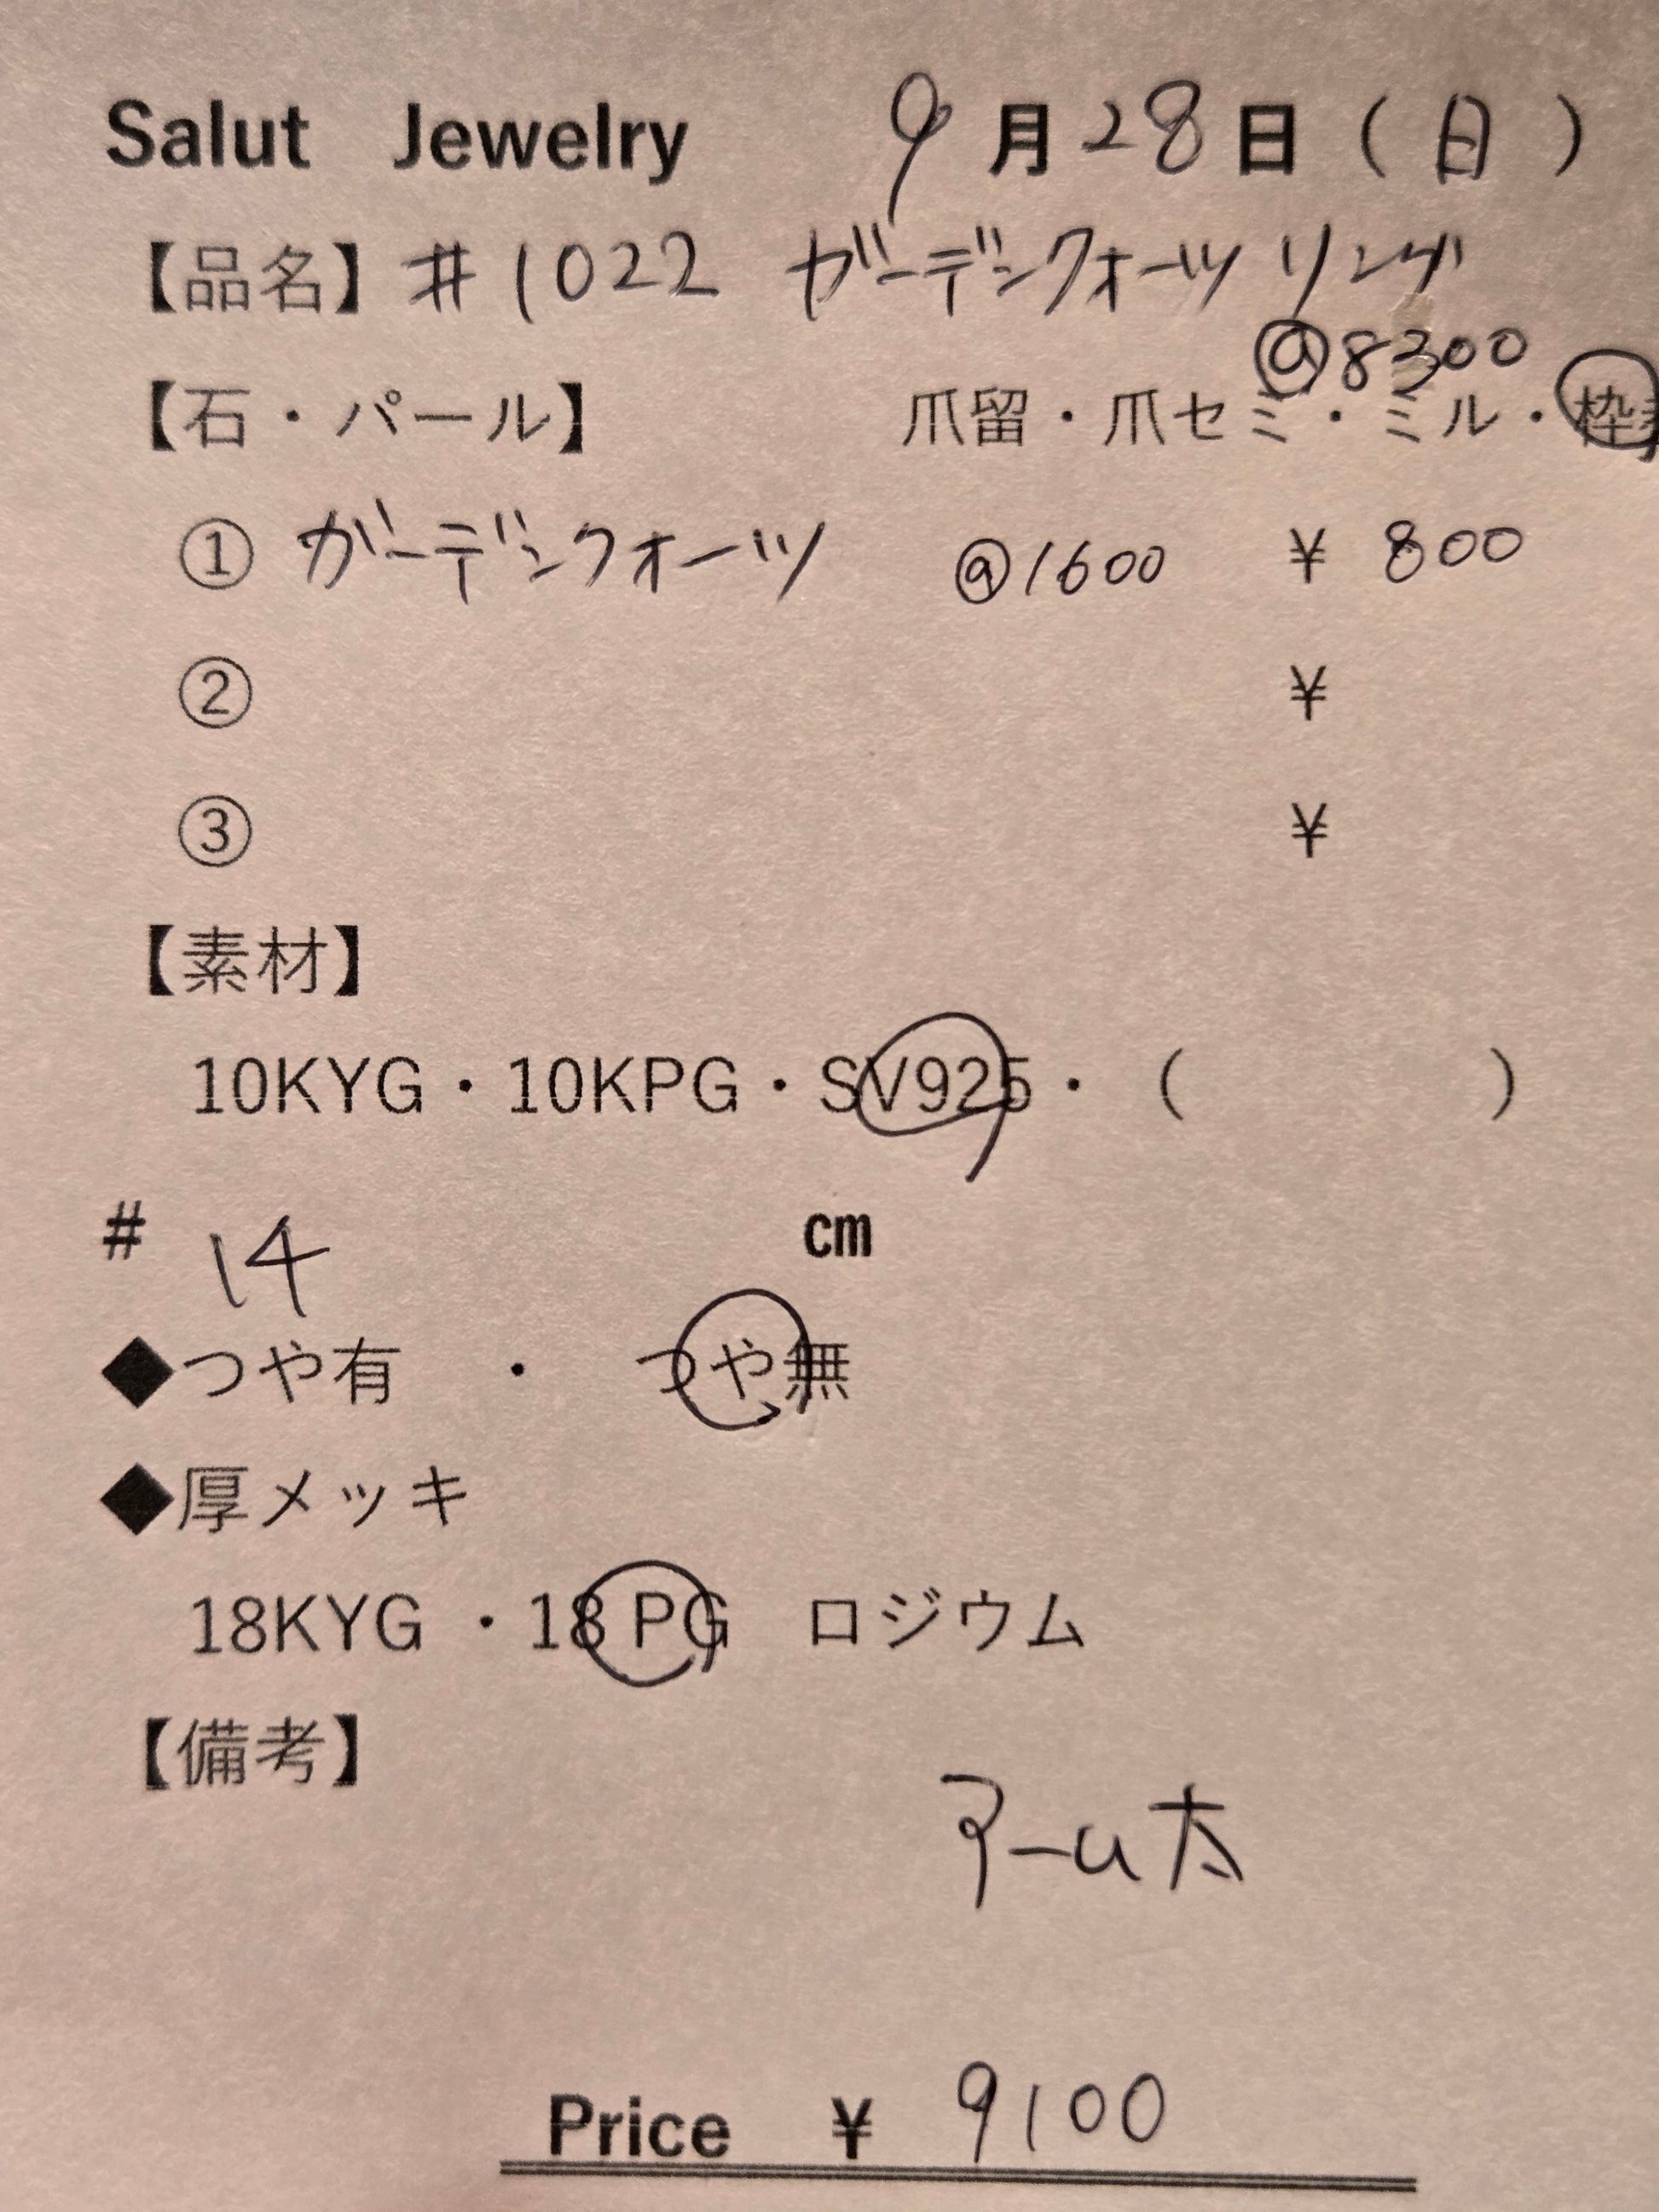 Salut Jewelry 9月28日（日）
【品名】#1022 ガーデンクォーツ リング
@8300
【石・パール】 爪留・爪セミ・ミル・枠
① ガーデンクォーツ @1600 ¥ 800
② ¥
③ ¥
【素材】
10KYG・10KPG・SV925・（ ）
# 14 cm
◆つや有 ・ つや無
◆厚メッキ
18KYG ・18 PG ロジウム
【備考】
アーム太
Price ¥ 9100